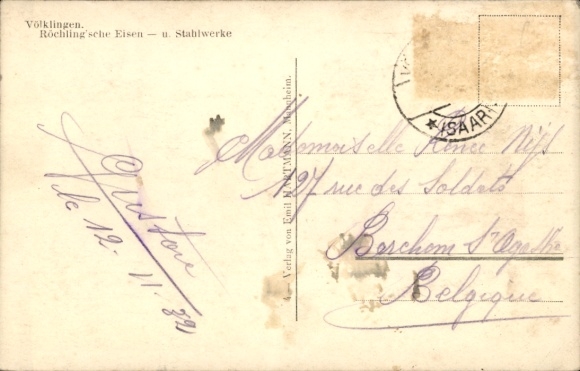 Völklingen.
Röchling'sche Eisen — u. Stahlwerke
★ (SAAR)
Gustave
le 12-11-32
4 — Verlag von Emil HARTMANN, Mannheim.
Mademoiselle Renée Nijs
127 rue des Soldats
Berchem Ste Agathe
Belgique